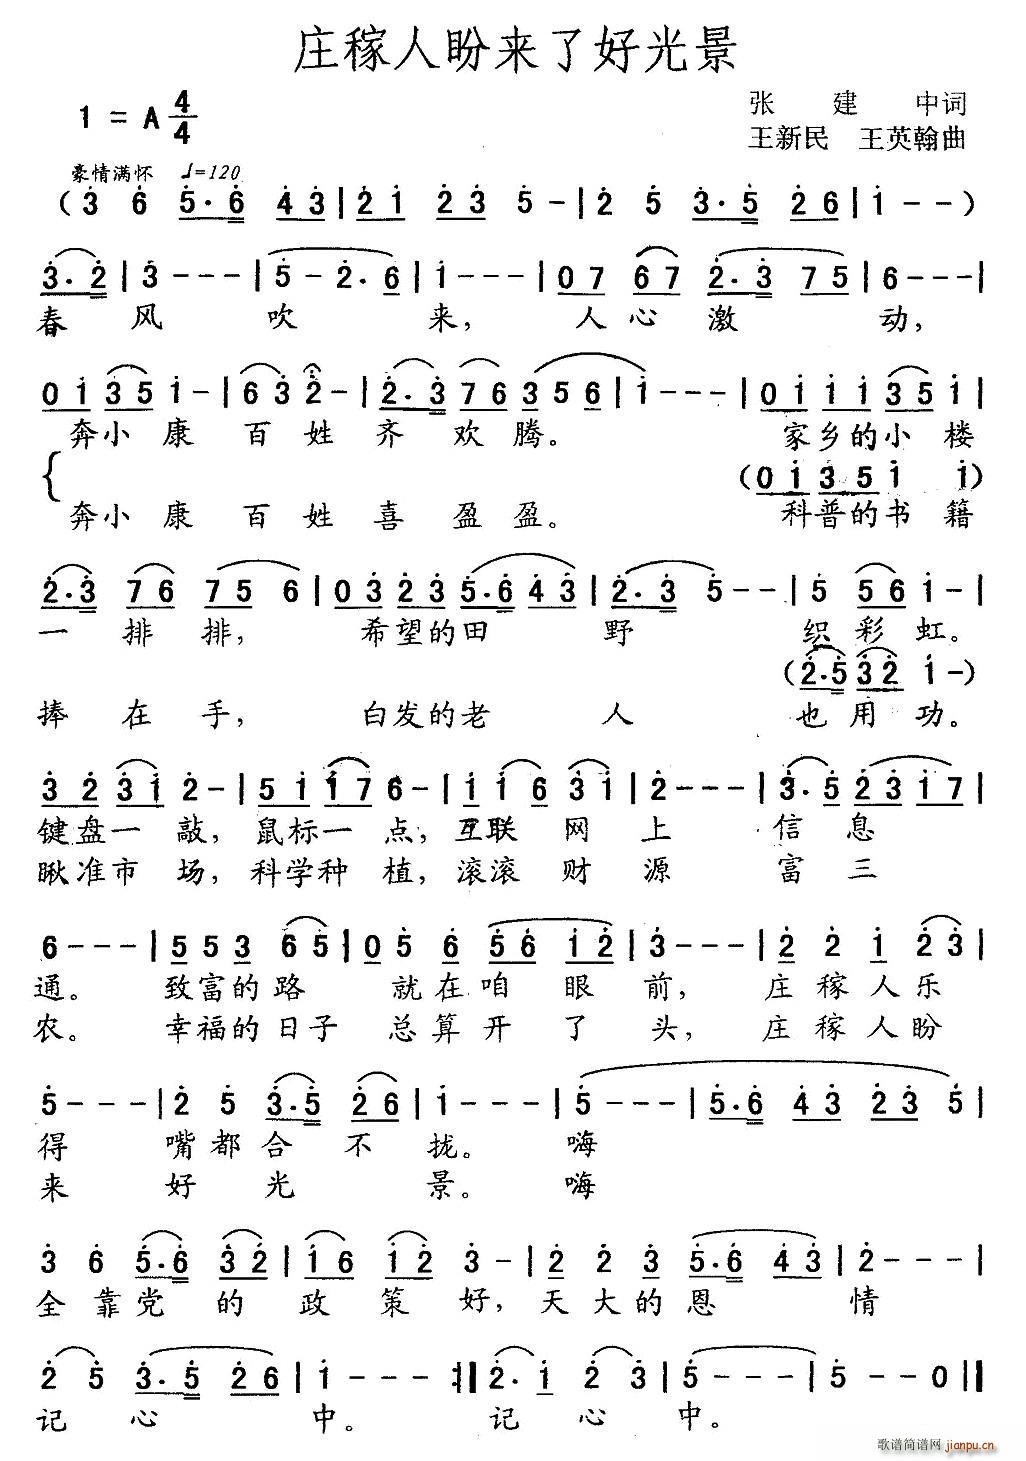 庄稼人盼来了好光景
1 = A 4/4
张 建 中词
王新民 王英翰曲
豪情满怀 ♩=120
( 3 6 5·6 4 3 | 2 1 2 3 5 - | 2 5 3·5 2 6 | 1 - - )
3·2 | 3 - - - | 5 - 2·6 | 1 - - - | 0 7 6 7 2·3 7 5 | 6 - - - |
春 风 吹 来, 人 心 激 动,
0 1 3 5 1 - | 6 3 2 - | 2·3 7 6 3 5 6 | 1 - - - | 0 1 1 1 3 5 1 |
奔小 康 百 姓 齐 欢 腾。 家乡的小 楼
(0 1 3 5 1 1)
奔小 康 百 姓 喜 盈 盈。 科普的书 籍
2·3 7 6 7 5 6 | 0 3 2 3 5·6 4 3 | 2·3 5 - - | 5 5 6 1 - |
一 排 排, 希望的田 野 织 彩 虹。
(2·5 3 2 1 -)
捧 在 手, 白发的老 人 也 用 功。
3 2 3 1 2 - | 5 1 1 7 6 - | 1 1 6 3 1 | 2 - - - | 3·5 2 3 1 7 |
键盘一 敲, 鼠标一 点, 互联 网 上 信 息
瞅准市 场, 科学种 植, 滚滚 财 源 富 三
6 - - - | 5 5 3 6 5 | 0 5 6 5 6 1 2 | 3 - - - | 2 2 1 2 3 |
通。 致富的 路 就 在 咱 眼 前, 庄 稼 人 乐
农。 幸福的 日子 总 算 开 了 头, 庄 稼 人 盼
5 - - - | 2 5 3·5 2 6 | 1 - - - | 5 - - - | 5·6 4 3 2 3 5 |
得 嘴 都 合 不 拢。 嗨
来 好 光 景。 嗨
3 6 5·6 3 2 | 1 6 1 2 3 - | 2 2 3 5·6 4 3 | 2 - - - |
全 靠 党 的 政 策 好, 天 大 的 恩 情
2 5 3·5 2 6 | 1 - - - :|| 2·1 2 3 | 5 - - - | 5 - - 0 ||
记 心 中。 记 心 中。
歌谱简谱网 jianpu.cn